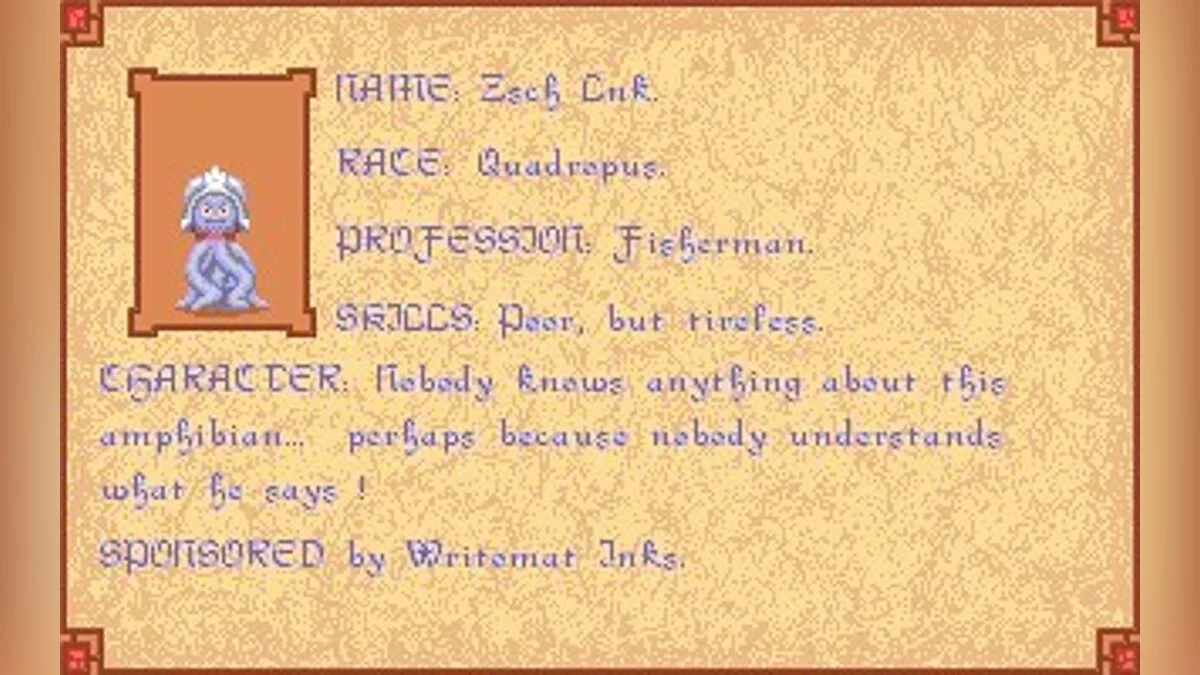 NAME: Zsch Lnk.
RACE: Quadropus.
PROFESSION: Fisherman.
SKILLS: Poor, but tireless.
CHARACTER: Nobody knows anything about this
amphibian... perhaps because nobody understands
what he says !
SPONSORED by Writomat Inks.